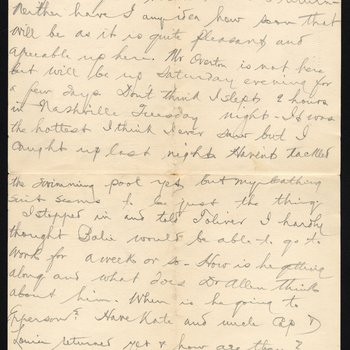 return
Neither have I any idea how soon that
will be as it is quite pleasant and
agreeable up here. Mr Overton is not here
but will be up Saturday evening for
a few days. Don't think I slept 2 hours
in Nashville Tuesday night - It was
the hottest I think I ever saw but I
caught up last night. Haven't tackled
the swimming pool yet but my bathing
suit seems to be just the thing
I stepped in and told Toliver I hardly
thought Batie would be able to go to
work for a week or so - How is he getting
along and what does Dr Allen think
about him. When is he going to
Epperson? Have Kate and uncle
Louise returned yet & how are they?